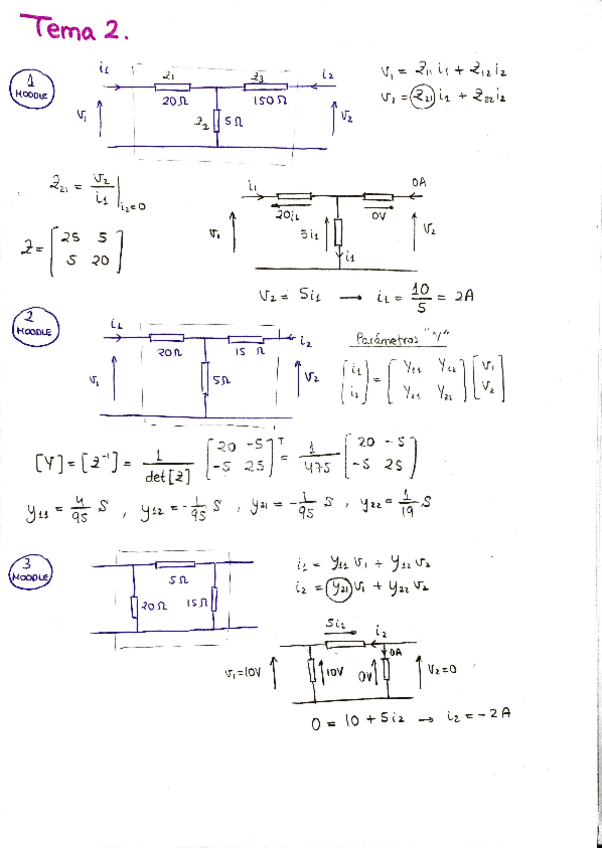 Tema 2.
1
MOODLE
i1 z1 z3 i2
20Ω 150Ω
z2 5Ω
v1 v2
v1 = z11 i1 + z12 i2
v2 = z21 i1 + z22 i2
z21 = v2/i1 | i2=0
i1 0A
20i1 0V
5i1
v1 v2
i1
Z = [25 5
5 20]
v2 = 5i1 → i1 = 10/5 = 2A
2
MOODLE
i1 i2
20Ω 15 Ω
v1 5Ω v2
Parámetros "Y"
[i1 i2] = [y11 y12 y21 y22] [v1 v2]
[Y] = [z⁻¹] = 1/det[z] [20 -5 -5 25]ᵀ = 1/475 [20 -5 -5 25]
y11 = 4/95 S , y12 = -1/95 S , y21 = -1/95 S , y22 = 1/19 S
3
MOODLE
5Ω
20Ω 15Ω
i1 = y11 v1 + y12 v2
i2 = y21 v1 + y22 v2
5i2 i2
0A
v1=10V 10V 0V v2=0
0 = 10 + 5i2 → i2 = -2A